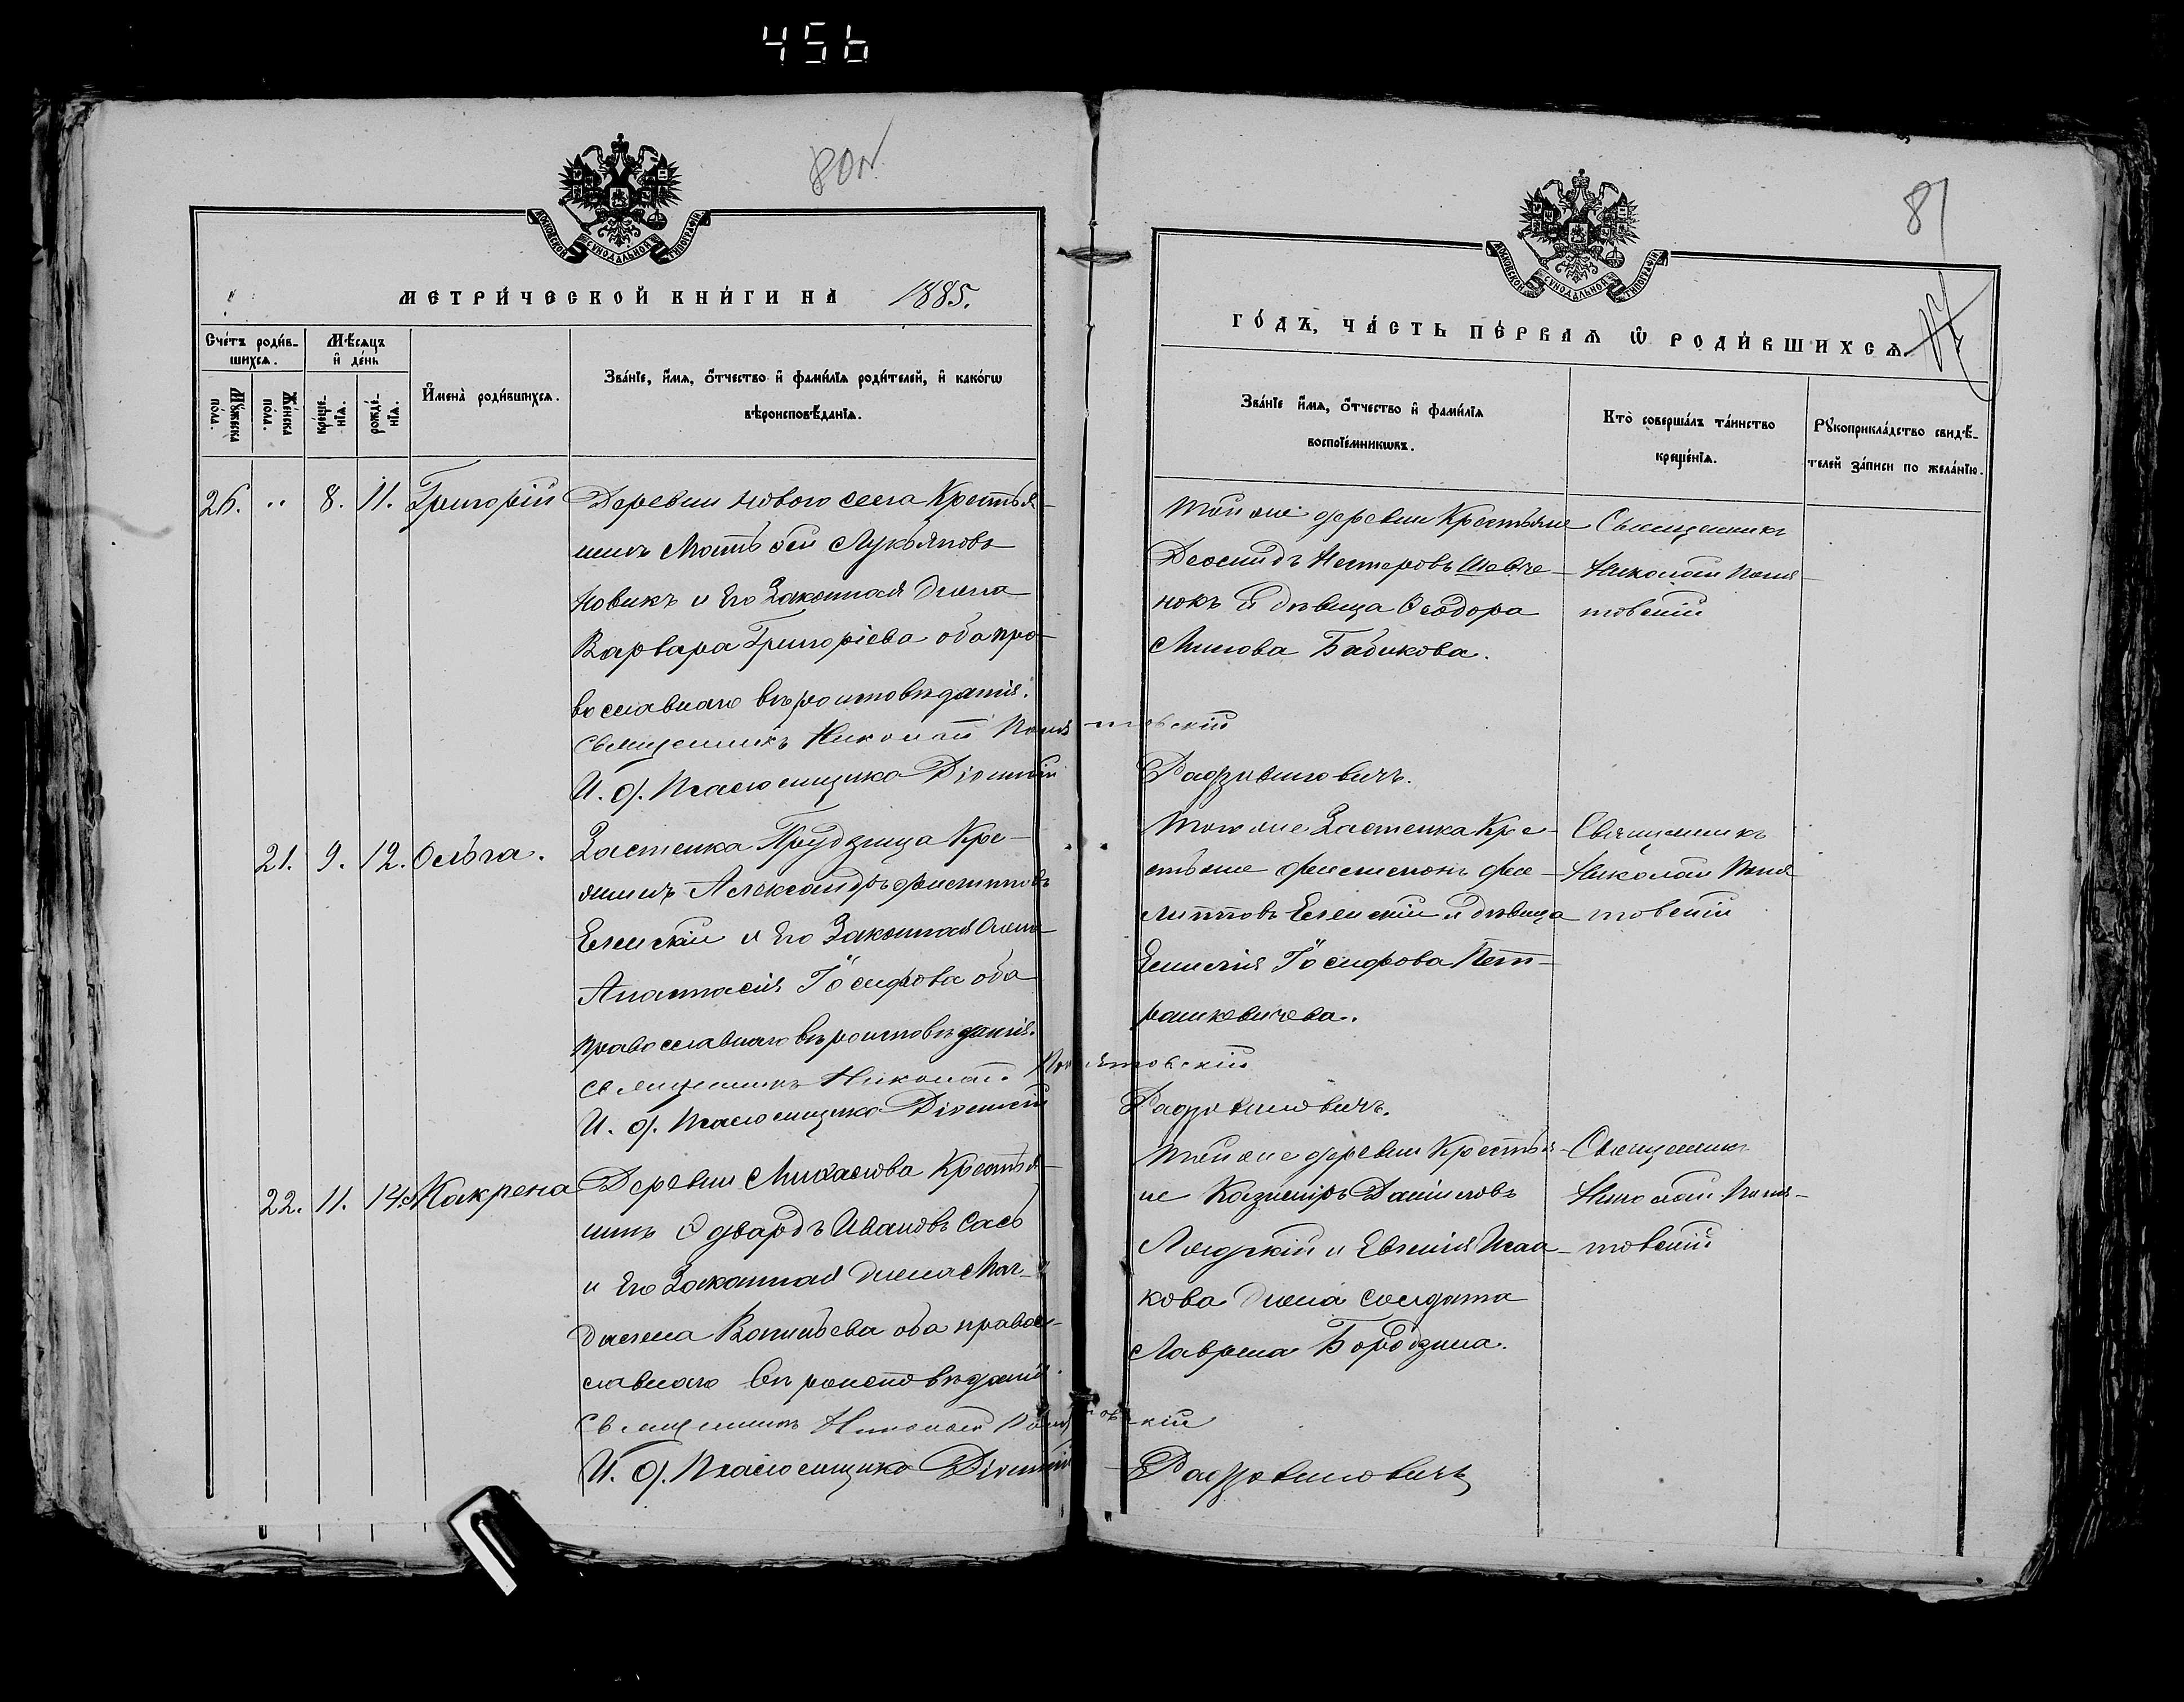 456
80 об.
81
МОСКОВСКОЙ СѴНОДАЛЬНОЙ ТИПОГРАФІИ
МЕТРИ́ЧЕСКОЙ КНИ́ГИ НА 1885.
Сче́тъ роди́в-
шихсѧ.
Мѣ́сѧцъ
и҆ де́нь
Му́жеска
пола.
Же́нска
пола.
креще́-
нїѧ.
рожде́-
нїѧ.
И҆мена̀ роди́вшихсѧ.
Зва́нїе, и҆́мѧ, ѻ҆́тчество и҆ фами́лїѧ роди́телей, и҆ како́гѡ
вѣроисповѣ́данїѧ.
26. " 8. 11. Григорій
Деревни Нового села Крестья-
нинъ Матѳей Лукьяновъ
Новикъ и Его Законная Жена
Варвара Григоріева оба пра-
вославнаго вѣроисповѣданія.
Священникъ Николай Понятовскій
И. д. Псаломщика Діонисій Радзивиновичъ.
21. 9. 12. Ольга.
Застенка Прудзища Кре-
янинъ Александръ Филипповъ
и Его Законная Жена
Анастасія Іосифова оба
православнаго вѣроисповѣданія.
Священникъ Николай Понятовскій
И. д. Псаломщика Діонисій Радзивиновичъ.
22. 11. 14. Макрена
Деревни Михалова Крестья-
нинъ Эдвардъ Ивановъ Сась
и Его Законная Жена Маг-
далена Васильева оба правос-
лавнаго вѣроисповѣданія.
Священникъ Николай Понятовскій
И. д. Псаломщика Діонисій Радзивиновичъ
ГО́ДЪ, ЧА́СТЬ ПЕ́РВАѦ Ѡ҆ РОДИ́ВШИХСѦ.
Зва́нїе и҆́мѧ, ѻ҆́тчество и҆ фами́лїѧ
воспрїе́мникѡвъ.
Кто̀ соверша́лъ та́инство
креще́нїѧ.
Рꙋкоприкла́дство свидѣ́-
телей за́писи по жела́нїю.
Той же деревни Крестьяне
Нестеровъ Шевче-
нокъ И дѣвица Ѳеодора
Минова Бабикова.
Священникъ
Николай Поня-
товскій
Того же Застенка Кре-
стьяне Фи-
липповъ и дѣвица
Емилія Іосифова Пет-
рашкевичева.
Священникъ
Николай Поня
товскій
Той же деревни Крестья-
не Казиміръ Даниловъ
и Евгенія Исаа-
кова Жена Солдата
Лаврена Бородзина.
Священникъ
Николай Поня-
товскій